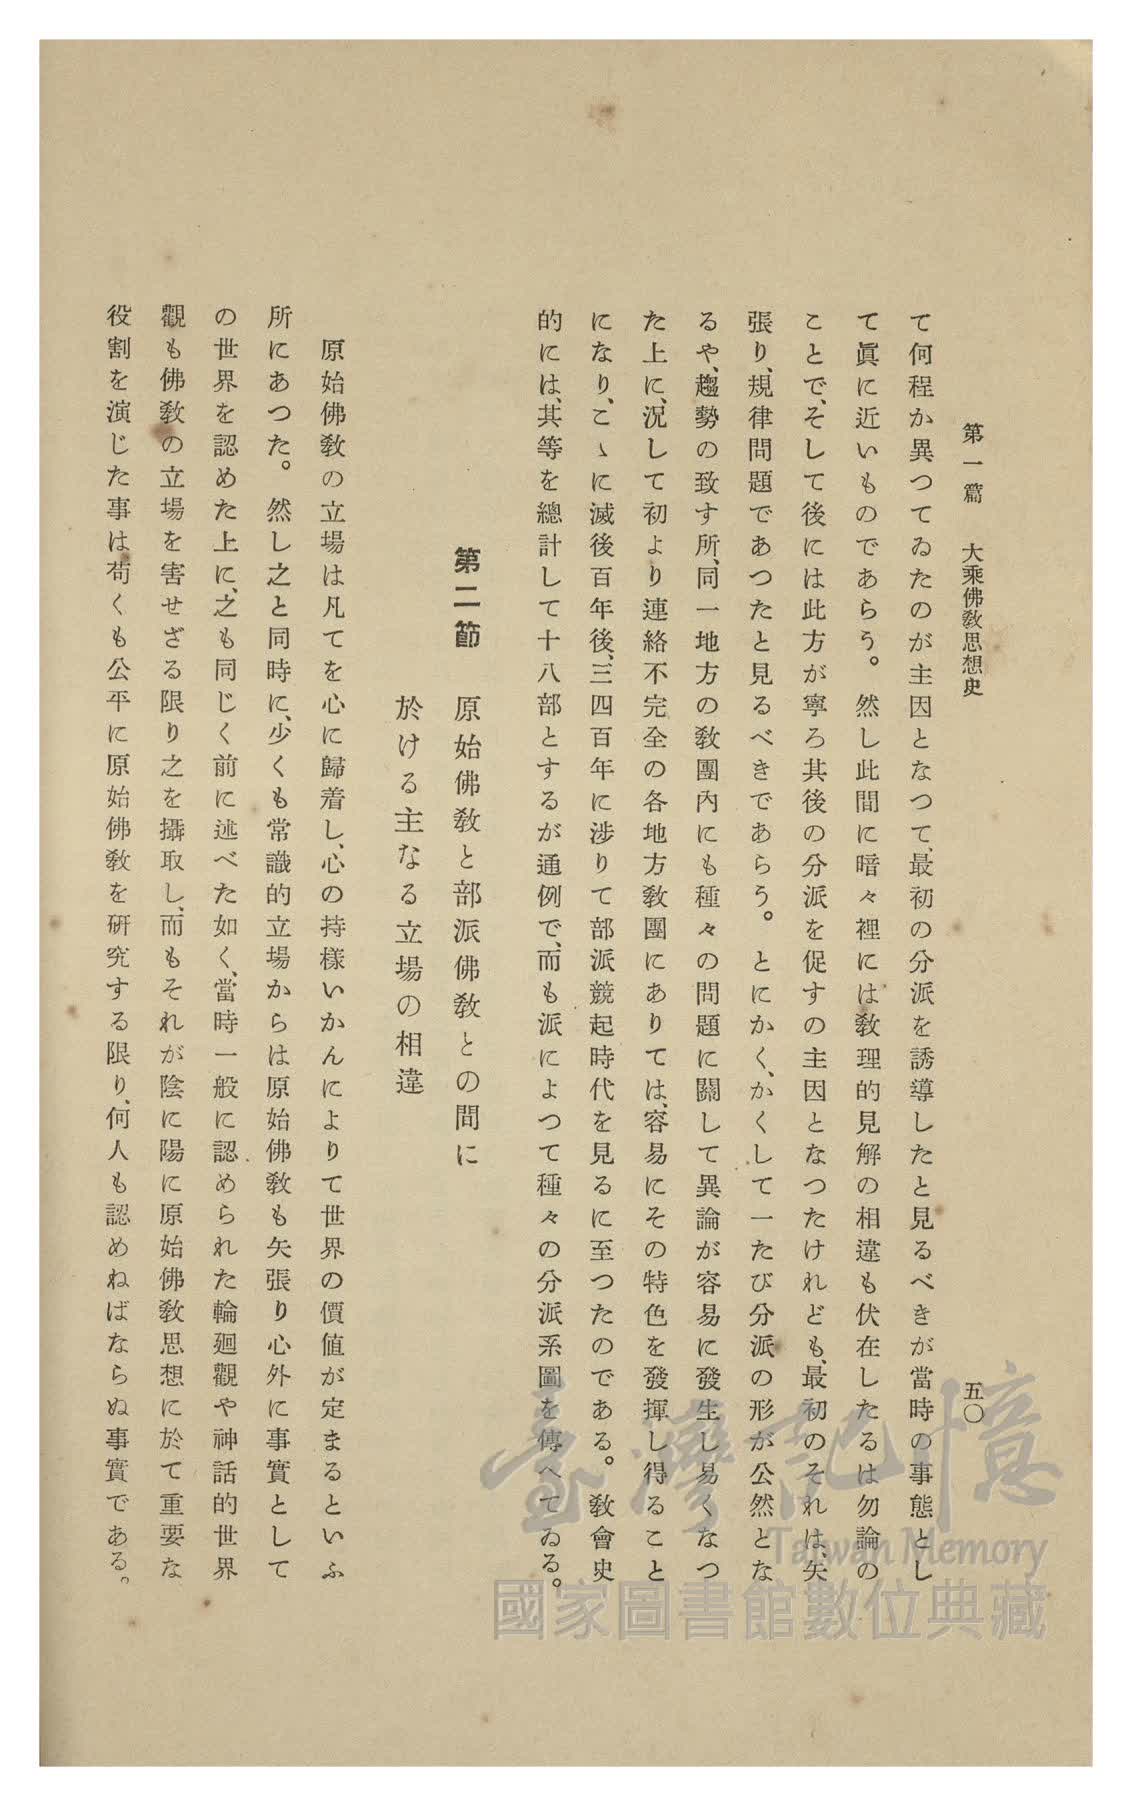 第一篇　大乘佛敎思想史
五〇
て何程か異つてゐたのが主因となつて、最初の分派を誘導したと見るべきが當時の事態とし
て眞に近いものであらう。然し此間に暗々裡には敎理的見解の相違も伏在したるは勿論の
ことで、そして後には此方が寧ろ其後の分派を促すの主因となつたけれども、最初のそれは、矢
張り、規律問題であつたと見るべきであらう。とにかく、かくして一たび分派の形が公然とな
るや、趨勢の致す所、同一地方の敎團內にも種々の問題に關して異論が容易に發生し易くなつ
た上に、況して初より連絡不完全の各地方敎團にありては、容易にその特色を發揮し得ること
になり、こゝに滅後百年後、三四百年に涉りて部派競起時代を見るに至つたのである。敎會史
的には、其等を總計して十八部とするが通例で、而も派によつて種々の分派系圖を傳へてゐる。
第二節　原始佛敎と部派佛敎との間に
於ける主なる立場の相違
原始佛敎の立場は凡てを心に歸着し、心の持樣いかんによりて世界の價値が定まるといふ
所にあつた。然し之と同時に、少くも常識的立場からは原始佛敎も矢張り心外に事實として
の世界を認めた上に、之も同じく前に述べた如く、當時一般に認められた輪廻觀や神話的世界
觀も佛敎の立場を害せざる限り之を攝取し、而もそれが陰に陽に原始佛敎思想に於て重要な
役割を演じた事は苟くも公平に原始佛敎を研究する限り、何人も認めねばならぬ事實である。
臺灣記憶
Taiwan Memory
國家圖書館數位典藏